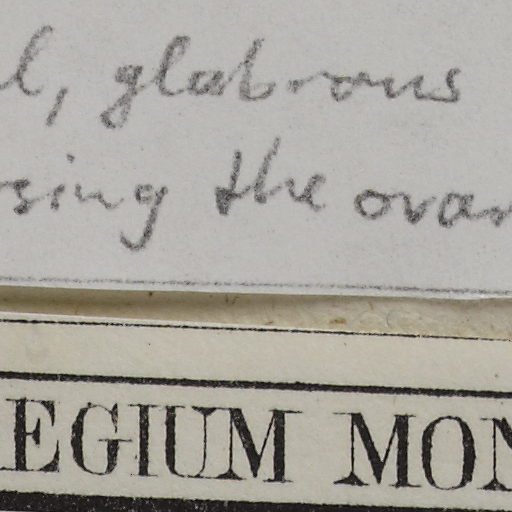 l, glabrous
sing the ovar
EGIUM MON